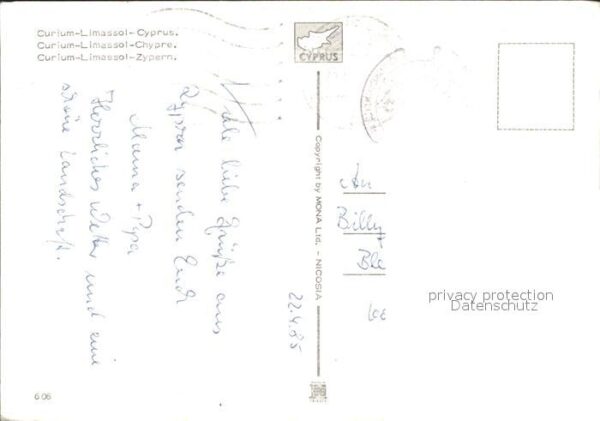 Curium-Limassol-Cyprus.
Curium-Limassol-Chypre.
Curium-Limassol-Zypern.
CYPRUS
Viele liebe Grüße aus
Zypern senden Euch
Mama + Papa
Herrliches Wetter und eine
schöne Landschaft.
22.4.85
Copyright by MONA Ltd. - NICOSIA
An
Billy
privacy protection
Datenschutz
6 06